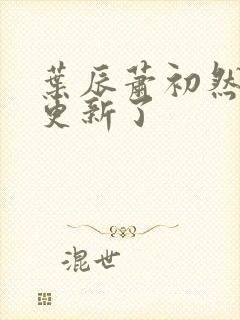 葉辰蕭初然
更新了
混世